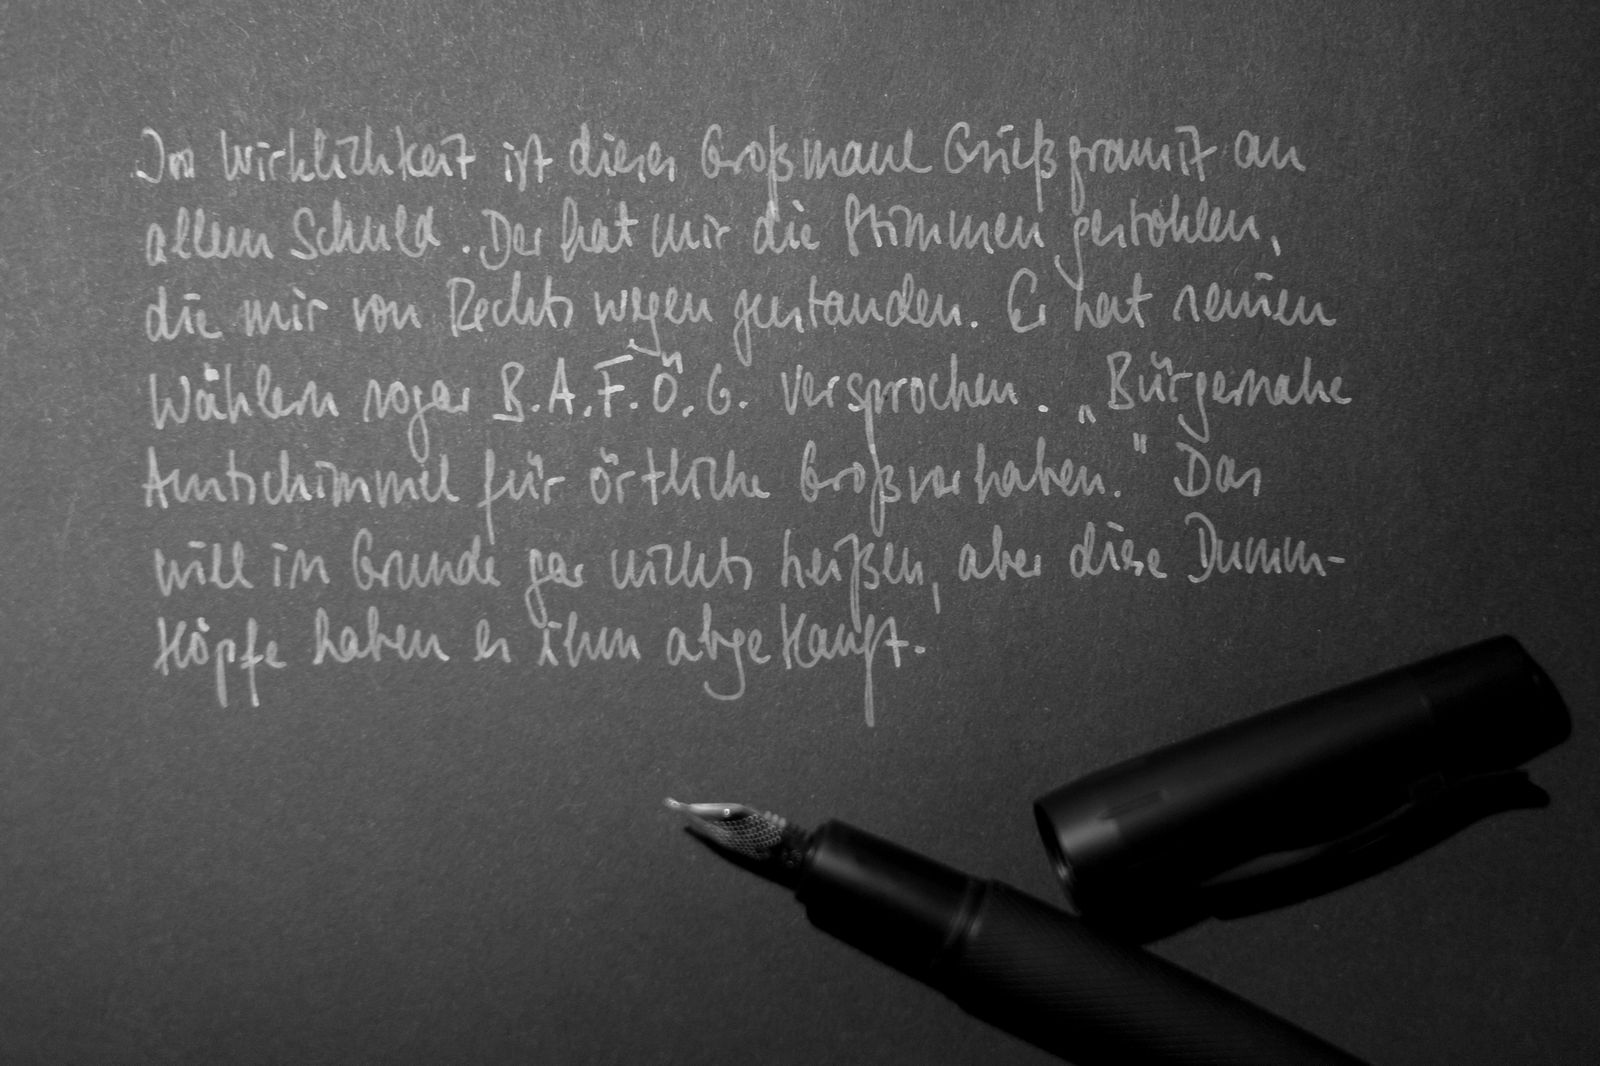 In Wirklichkeit ist dieses Großmaul Grießgramitz an
allem Schuld. Der hat mir die Stimmen gestohlen,
die mir von Rechts wegen zustanden. Er hat seinen
Wählern sogar B.A.F.Ö.G. versprochen. „Bürgernahe
Amtschimmel für örtliche Großvorhaben." Das
will im Grunde gar nichts heißen, aber diese Dumm-
köpfe haben es ihm abgekauft.